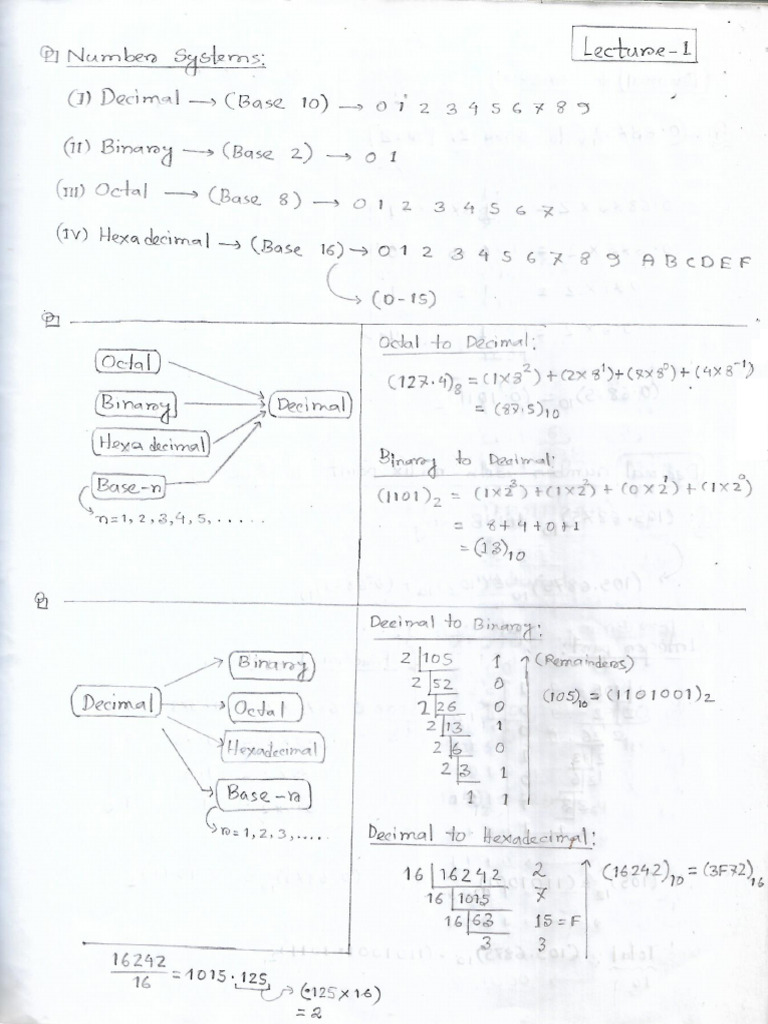 Lecture-1
Number Systems:
(I) Decimal → (Base 10) → 0 1 2 3 4 5 6 7 8 9
(II) Binary → (Base 2) → 0 1
(III) Octal → (Base 8) → 0 1 2 3 4 5 6 7
(IV) Hexadecimal → (Base 16) → 0 1 2 3 4 5 6 7 8 9 A B C D E F
(0-15)
Octal
Binary
Hexa decimal
Base-n
n=1, 2, 3, 4, 5, ......
Decimal
Octal to Decimal:
(127.4)₈ = (1×8²)+(2×8¹)+(7×8⁰)+(4×8⁻¹)
= (87.5)₁₀
Binary to Decimal:
(1101)₂ = (1×2³)+(1×2²)+(0×2¹)+(1×2⁰)
= 8+4+0+1
= (13)₁₀
Decimal
Binary
Octal
Hexadecimal
Base-n
n=1, 2, 3, ....
Decimal to Binary:
2 105 1 (Remainders)
2 52 0
(105)₁₀ = (1101001)₂
2 26 0
2 13 1
2 6 0
2 3 1
1 1
Decimal to Hexadecimal:
16 16242 2 (16242)₁₀ = (3F72)₁₆
16 1015 7
16 63 15=F
3 3
16242/16 = 1015.125 → (.125×16)
= 2